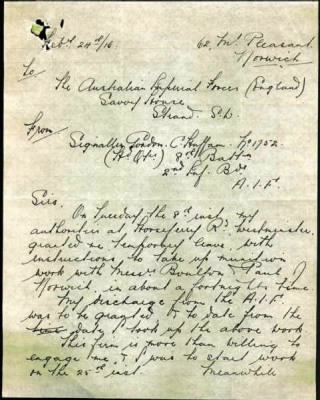 Feb. 24th/16. 62, Mt. Pleasant.
Norwich
To
The Australian Imperial Forces (England)
Savoy House
Strand. S.W.
From
Signaller Gordon. C. No 1952
(Hd Qtrs) 8th Battn
2nd Inf. Bde
A.I.F.
Sirs.
On Tuesday the 8th inst my
authorities at Horseferry Rd. Westminster,
granted me temporary leave, with
instructions to take up munition
work with Messrs Boulton & Paul
Norwich, in about a fortnight's time.
My discharge from the A.I.F.
was to be granted & to date from the
date I took up the above work.
This firm is more than willing to
engage me, & I was to start work
on the 25th inst. Meanwhile